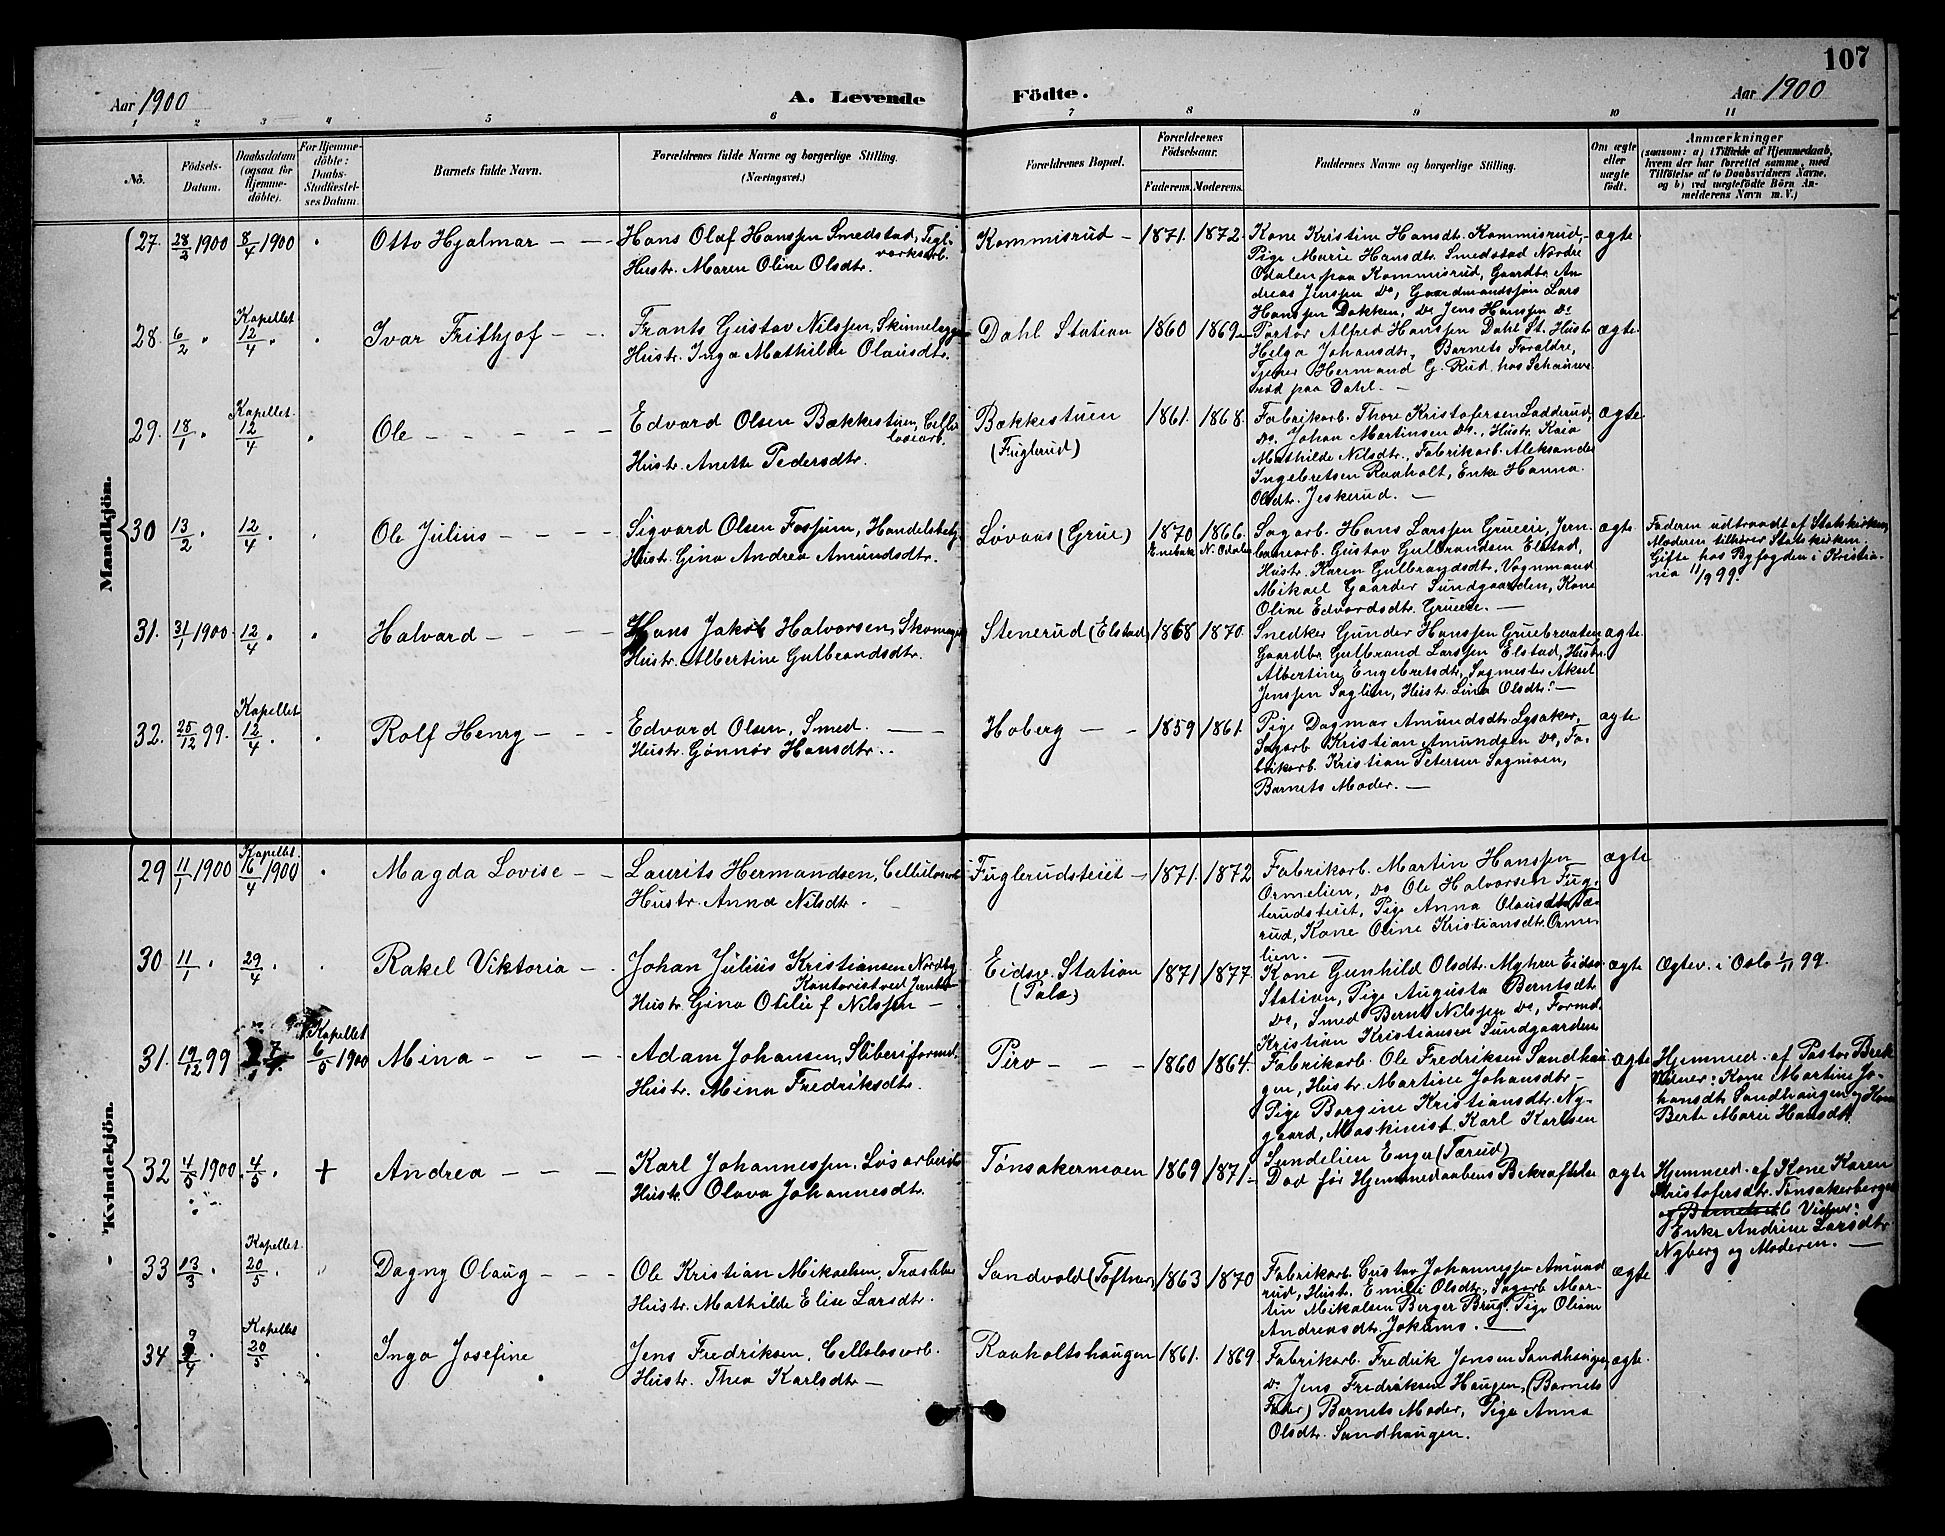 107
Aar 1900
A. Levende
Födte.
Aar 1900
1 2 3 4 5 6 7 8 9 10 11
No.
Födsels-
Datum.
Daabsdatum
(ogsaa for
Hjemme-
döbte).
For Hjemme-
döbte:
Daabs-
Stadfæstel-
ses Datum.
Barnets fulde Navn.
Forældrenes fulde Navne og borgerlige Stilling.
(Næringsvei.)
Forældrenes Bopæl.
Forældrenes
Födselsaar.
Faderens. Moderens.
Faddernes Navne og borgerlige Stilling.
Om ægte
eller
uægte
födt.
Anmærkninger
(saasom: a) i Tilfælde af Hjemmedaab,
hvem der har forrettet samme, med
Tilföielse af to Daabsvidners Navne,
og b) ved uægtefödte Börn An-
melderens Navn m. V.)
Mandkjön.
27. 28/2 1900 8/4 1900 Otto Hjalmar
Hans Olaf Hanssen Smedstad, Tegl-
værksarb.
Hustr. Maren Oline Olsdtr.
Kommisrud 1871. 1872.
Kone Kristine Hansdt. Kommisrud,
Pige Marie Hansdtr. Smedstad Nordre
Odalen paa Kommisrud, Gaardbr. An-
dreas Jenssen Do, Gaardmandssøn Lars
Hanssen Dokken, Do Jens Hanssen Do
ægte
28. 6/2 " Kapellet 12/4 " Ivar Frithjof
Frants Gustav Nilssen, Skinnelægger
Hustr. Inga Mathilde Olausdtr.
Dahl Station 1860 1869
Pastor Alfred Hanssen Dahl St. Hustr.
Helga Johansdtr, Barnets Forældre,
Tjener Hermand G. Rud hos
paa Dahl.
ægte
29. 18/1 " Kapellet 12/4 Ole
Edvard Olsen Bækkestuen, Cellu-
losearb.
Hustr. Anette Pedersdtr.
Bækkestuen
(Fuglerud)
1861. 1868.
Fabrikarb. Thore Kristofersen Ladderud,
Do. Johan Martinsen Do., Hustr. Kaia
Mathilde Nilsdtr., Fabrikarb. Aleksander
Ingebretsen Raaholt, Enke Hanna
Olsdtr. Jeskerud.
ægte
30 13/2 " 12/4 " Ole Julius
Sigvard Olsen Fossum, Handelsbetj.
Hustr. Gina Andrea Amundsdtr.
Løvaas (Grue) 1870 1866.
Enebak N. Odalen
Sagarb. Hans Larssen Grueeie, Jern-
banearb. Gustav Gulbrandsen Elstad,
Hustr. Karen Gulbrandsdtr. Vognmand
Mikael Gaarder Sundgaarden, Kone
Oline Edvardsdtr. Grueeie.
ægte
Faderen udtraadt af Statskirken,
Moderen tilhører Statskirken.
Gifte hos Byfogden i Kristia-
nia 11/9 99.
31. 31/1 1900 12/4 " Halvard
Hans Jakob Halvorsen, Skomager
Hustr. Albertine Gulbrandsdtr.
Stenerud (Elstad) 1868 1870.
Snedker Gunder Hanssen Gruebraaten
Gaardbr. Gulbrand Larssen Elstad, Hustr.
Albertine Engebretsdtr, Sagmester Aksel
Jenssen Saglien, Hustr. Lina Olsdtr.
ægte
32. 25/12 99. Kapellet 12/4 " Rolf Henry
Edvard Olsen, Smed.
Hustr. Gønnør Hansdtr.
Hoberg 1859 1861
Pige Dagmar Amundsdtr. Lysaker,
Sagarb. Kristian Amundsen Do, Fa-
brikarb. Kristian Petersen Sagmoen,
Barnets Moder.
ægte
Kvindekjön.
29 11/1 1900 Kapellet 16/4 1900 Magda Lovise
Laurits Hermandsen, Cellulosearb
Hustr. Anna Nilsdtr.
Fuglerudsteiet 1871. 1872
Fabrikarb. Martin Hanssen
Ormelien, Do Ole Halvorsen Fug-
lerudsteiet, Pige Anna Olausdtr. Tæ-
rud, Kone Oline Kristiansdtr. Orme-
lien.
ægte
30 11/1 " 29/4 " Rakel Viktoria
Johan Julius Kristiansen Nordby
Kontorist ved Jernb.
Hustr. Gina Otilie f Nilssen
Eidsv. Station
1871 1877
Kone Gunhild Olsdtr. Myhrer Eidsv.
Station, Pige Augusta Berntsdtr.
Do, Smed Bernt Nilssen Do, Formd.
Kristian Kristiansen Sundgaarden
ægte
Ægtev. i Oslo 1/11 99.
31. 19/12 99 Kapellet 6/5 1900 Mina
Adam Johansen, Sliberiformd.
Hustr. Mina Fredriksdtr.
Piro 1860 1864.
Fabrikarb. Ole Fredriksen Sandhau-
gen, Hustr. Martine Johansdtr.
Pige Borgine Kristiansdtr. Ny-
gaard, Maskinist Karl Karlsen
Sundelien Enga (Tærud)
ægte
Hjemmed. af Pastor Brek
Vidner: Kone Martine Jo-
hansdt. Sandhaugen og Kone
Berte Marie Hansdt.
32 4/5 1900. 4/5 " + Andrea
Karl Johannessen, Løsarbeider
Hustr. Olava Johannesdtr.
Tønsakermoen 1869 1871
Død før Hjemmedaabens Bekræftelse
ægte
Hjemmed. af Kone Karen
Kristofersdtr. Tønsakerberget
og Vidner:
Enke Andrine Larsdtr.
Nyberg og Moderen.
33 13/3 " Kapellet 20/5 " Dagny Olaug
Ole Kristian Mikaelsen, Træsliber
Hustr. Mathilde Elise Larsdtr.
Sandvold (Toftner) 1863 1870
Fabrikarb. Gustav Johannessen Amund-
rud, Hustr. Emilie Olsdtr., Sagarb. Mar-
tin Mikalsen Berger Brug. Pige Oline
Andreasdtr. Jokums.
ægte
34 9/4 " Kapellet 20/5 Inga Josefine
Jens Fredriksen, Cellulosearb.
Hustr. Thea Karlsdtr
Raaholtshaugen 1861. 1869
Fabrikarb. Fredrik Jensen Sandhaugen,
Do Jens Fredriksen Haugen, (Barnets
Fader) Barnets Moder, Pige Anna
Olsdtr. Sandhaugen.
ægte.